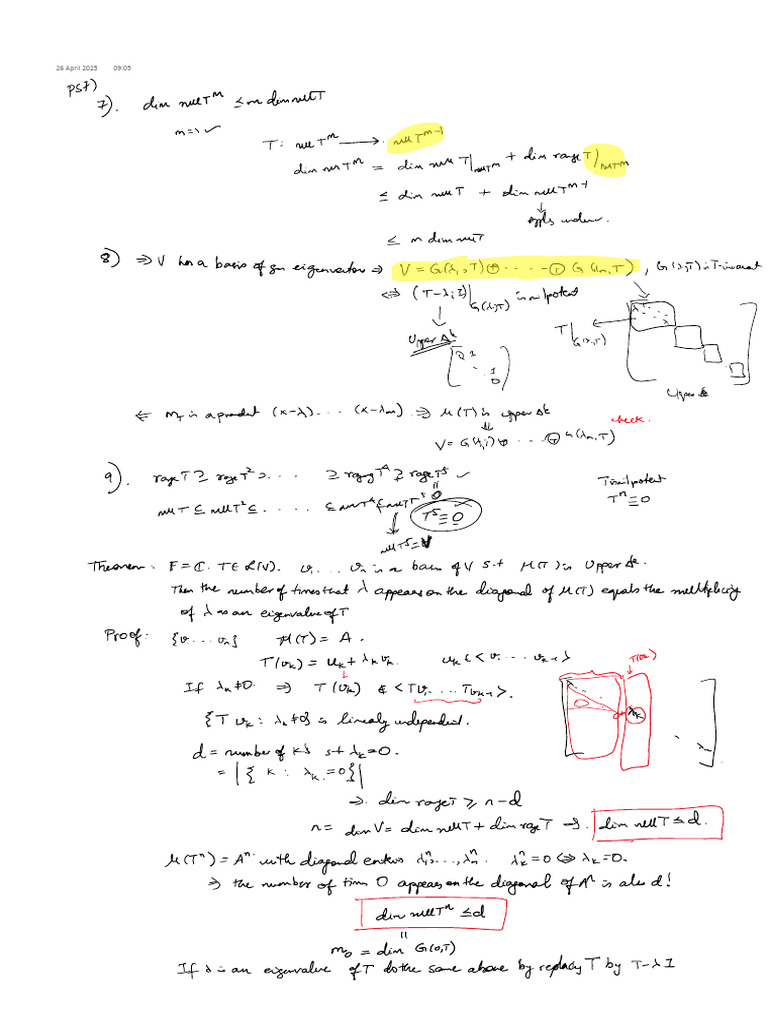 26 April 2025 09:05
PS7)
7). dim null T^m ≤ m dim null T
m=1 ✓
T: null T^m → null T^{m-1}
dim null T^m = dim null T|_{null T^m} + dim range T|_{null T^m}
≤ dim null T + dim null T^{m-1}
↓
≤ m dim null T
8) ⇒ V has a basis of gen eigenvectors ⇒ V = G(λ_1, T) ⊕ ····· ⊕ G(λ_m, T), G(λ,T) is T-invariant
⇔ (T-λ_i I)|_{G(λ_i,T)} is nilpotent
↓
Upper Δ^r
(0 1 ⋱ 1 0)
T|_{G(λ_i,T)}
Upper Δr
⇐ m_T is a product (x-λ_1) ···· (x-λ_m) ⇒ M(T) is upper Δr check.
⇓
V = G(λ_1,T) ⊕ ··· ⊕ G(λ_m, T)
9). range T ⊇ range T^2 ⊇ ···· ⊇ range T^4 ⊋ range T^5 ✓
= 0
null T ⊆ null T^2 ⊆ ····· ⊆ null T^4 ⊊ null T^5
T^5 ≡ 0 ✓
null T^5 = V
T nilpotent
T^n ≡ 0
Theorem: F = ℂ. T ∈ L(V). v_1 ... v_n is a basis of V s.t M(T) is Upper Δr.
Then the number of times that λ appears on the diagonal of M(T) equals the multiplicity
of λ as an eigenvalue of T
Proof: {v_1 ... v_n} M(T) = A.
T(v_k) = u_k + λ_k v_k. u_k ∈ <v_1 ... v_{k-1}>
T(v_k)
If λ_k ≠ 0 ⇒ T(v_k) ∉ <Tv_1 ... Tv_{k-1}>.
λ_k
{T v_k : λ_k ≠ 0} is linearly independent.
d = number of k's s.t λ_k = 0.
= |{k : λ_k = 0}|
⇒ dim range T ≥ n-d
n = dim V = dim null T + dim range T ⇒ dim null T ≤ d.
M(T^n) = A^n with diagonal entries λ_1^n, ..., λ_n^n. λ_k^n = 0 ⇔ λ_k = 0.
⇒ the number of times 0 appears on the diagonal of A^n is also d!
dim null T^n ≤ d
=
m_0 = dim G(0,T)
If λ is an eigenvalue of T do the same above by replacing T by T-λI